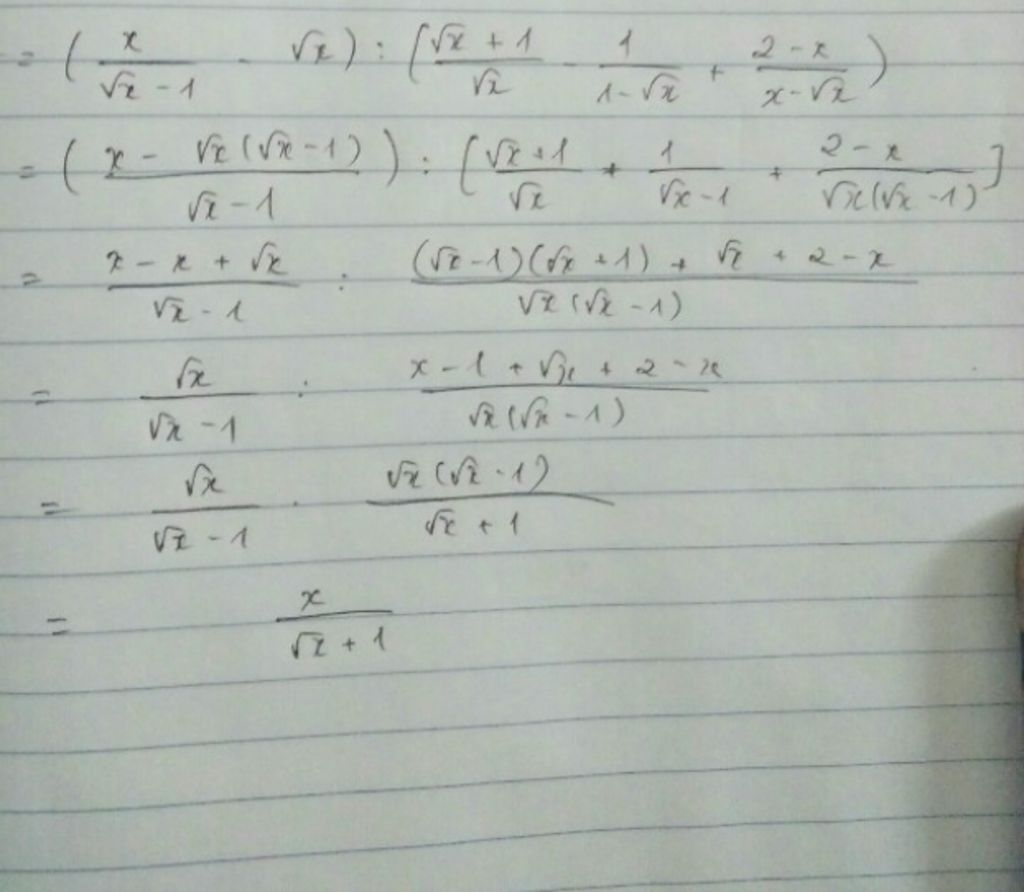 = ( x/(√x - 1) - √x ) : ( (√x + 1)/√x - 1/(1-√x) + (2-x)/(x-√x) )
= ( (x - √x(√x-1))/(√x - 1) ) : [ (√x+1)/√x + 1/(√x-1) + (2-x)/(√x(√x-1)) ]
= (x - x + √x)/(√x - 1) : ((√x-1)(√x+1) + √x + 2 - x)/(√x(√x-1))
= √x/(√x - 1) : (x - 1 + √x + 2 - x)/(√x(√x-1))
= √x/(√x - 1) . √x(√x-1)/(√x + 1)
= x/(√x + 1)